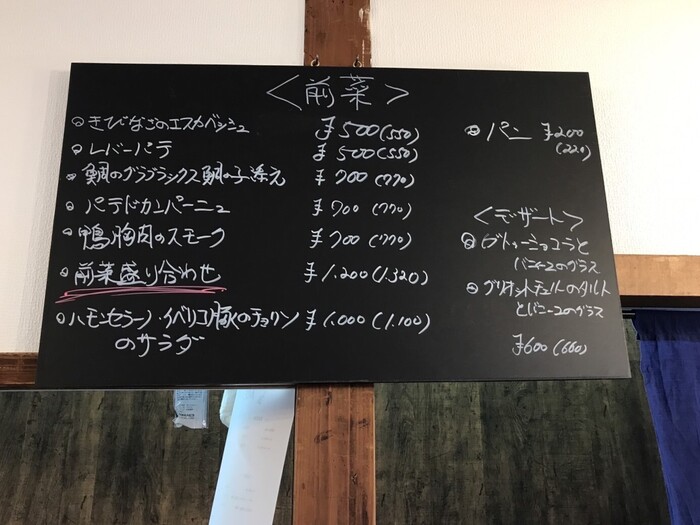 <前菜>
きびなごのエスカベッシュ ¥500(550)
レバーパテ ¥500(550)
鯛のグラブラックス 鯛の子添え ¥700(770)
パテドカンパーニュ ¥700(770)
鴨胸肉のスモーク ¥700(770)
前菜盛り合わせ ¥1.200(1.320)
ハモンセラーノ・イベリコ豚のチョリソ ¥1.000(1.100)
のサラダ
パン ¥200
(220)
<デザート>
ガトーショコラと
バニラのグラス
グリオットチェリーのタルト
とバニラのグラス
¥600(660)